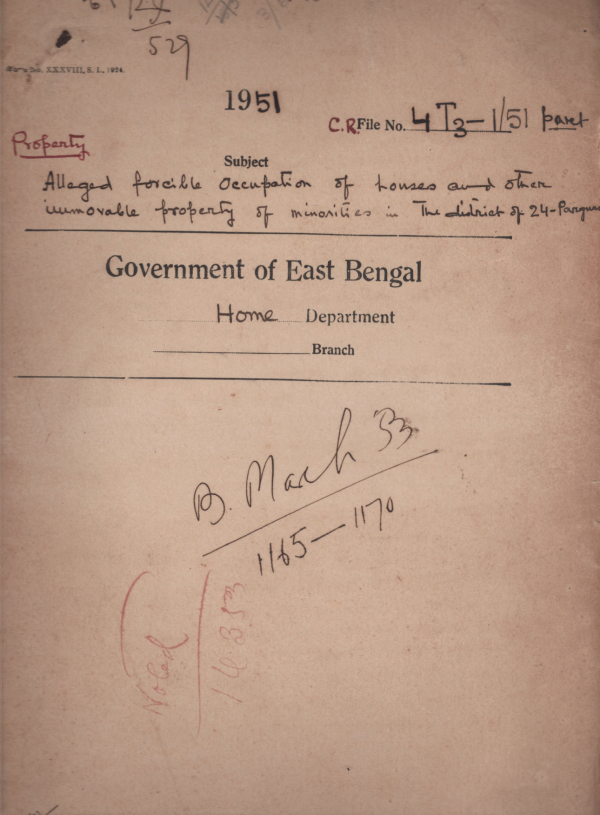 529
XXXVIII, S. I., 1924.
1951
C.R. File No. 4T3-1/51 part
Property
Subject
Alleged forcible occupation of houses and other
immovable property of minorities in The district of 24-Parganas
Government of East Bengal
Home Department
Branch
B. March 53
1165—1170
Noted